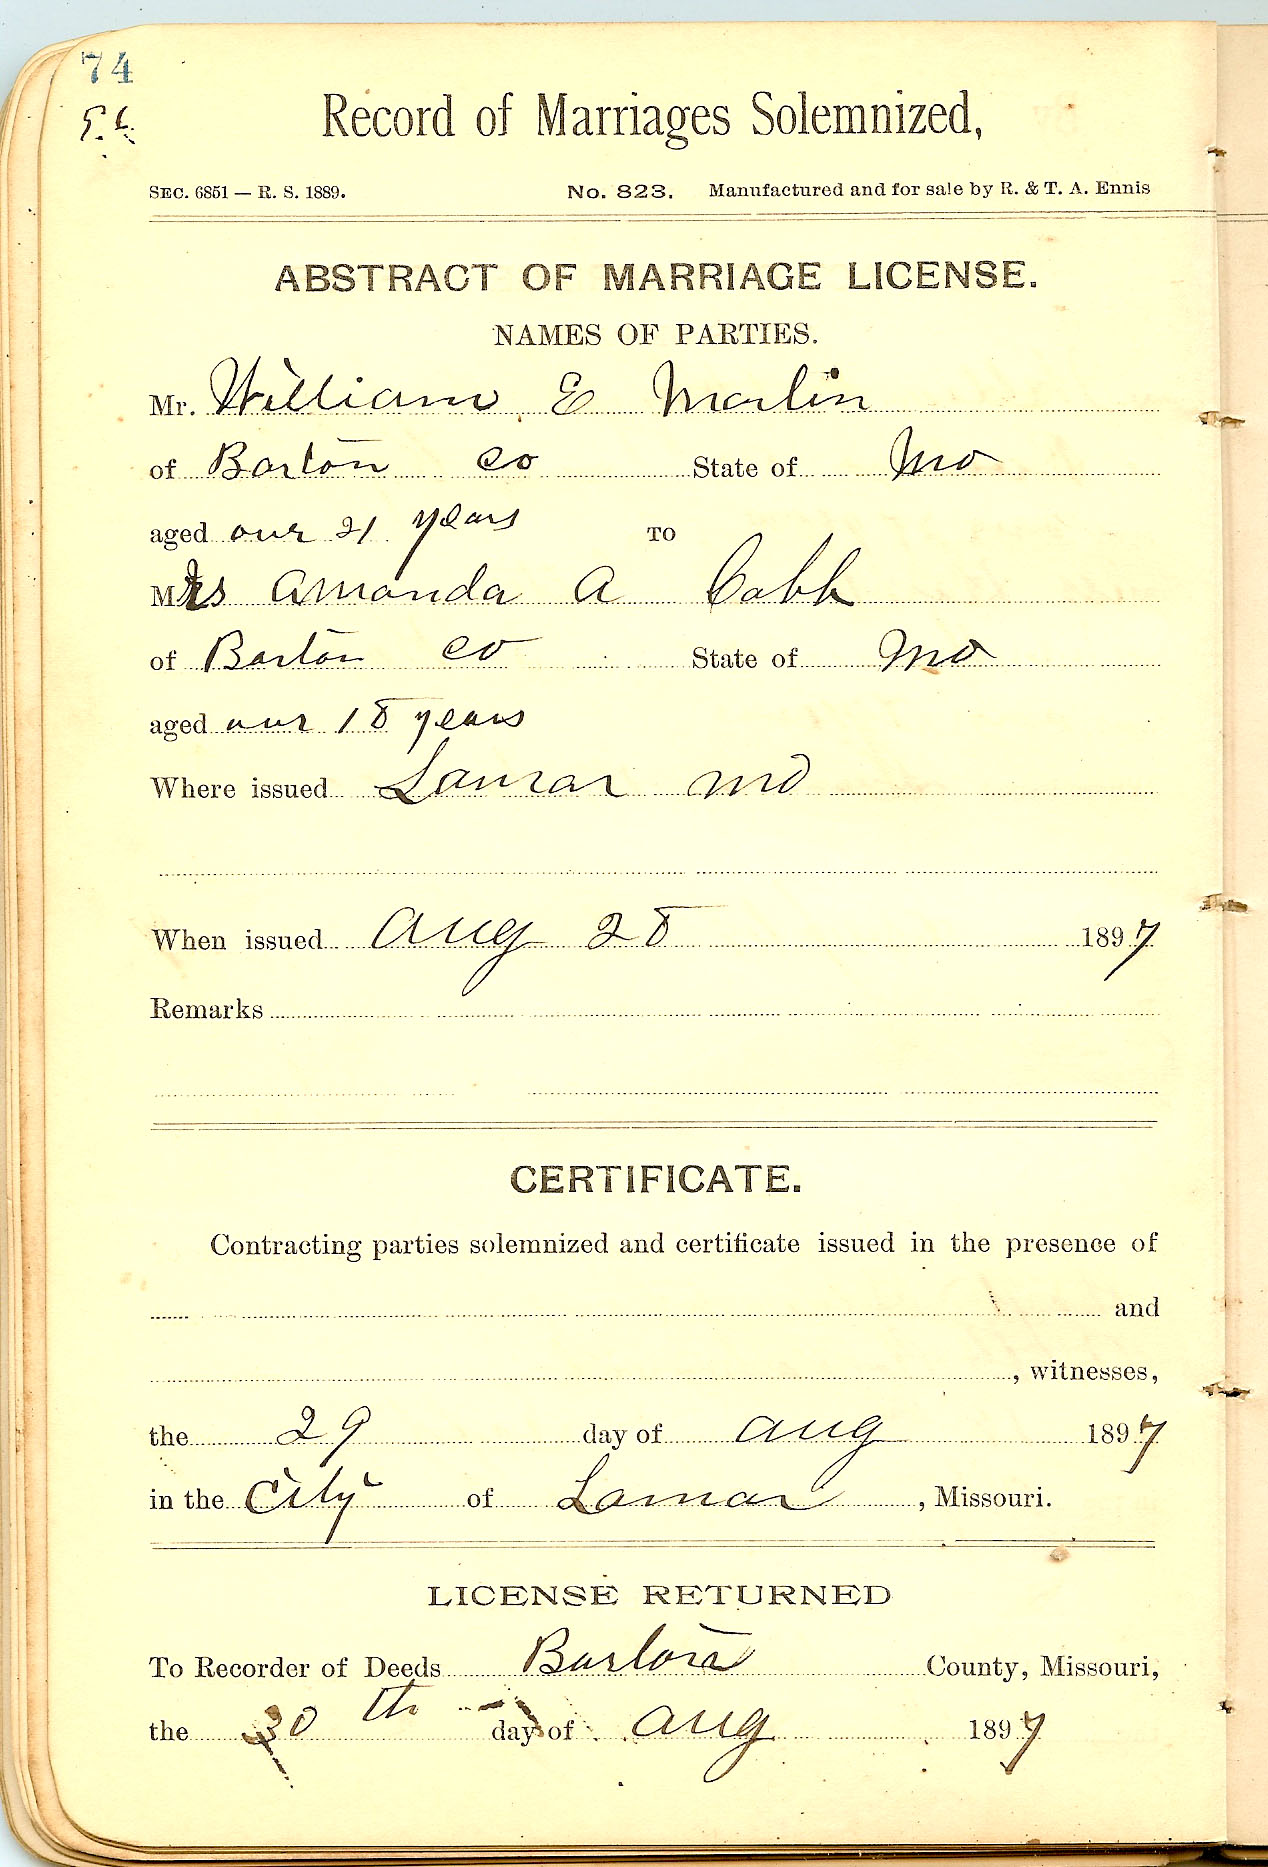 74
Record of Marriages Solemnized,
SEC. 6851 — R. S. 1889. No. 823. Manufactured and for sale by R. & T. A. Ennis
ABSTRACT OF MARRIAGE LICENSE.
NAMES OF PARTIES.
Mr. William E Marlin
of Barton Co State of Mo
aged over 21 years TO
Mrs Amanda A Cobb
of Barton Co State of Mo
aged over 18 years
Where issued Lamar Mo
When issued Aug 28 1897
Remarks
CERTIFICATE.
Contracting parties solemnized and certificate issued in the presence of
and
, witnesses,
the 29 day of Aug 1897
in the City of Lamar , Missouri.
LICENSE RETURNED
To Recorder of Deeds Barton County, Missouri,
the 30 th day of Aug 1897